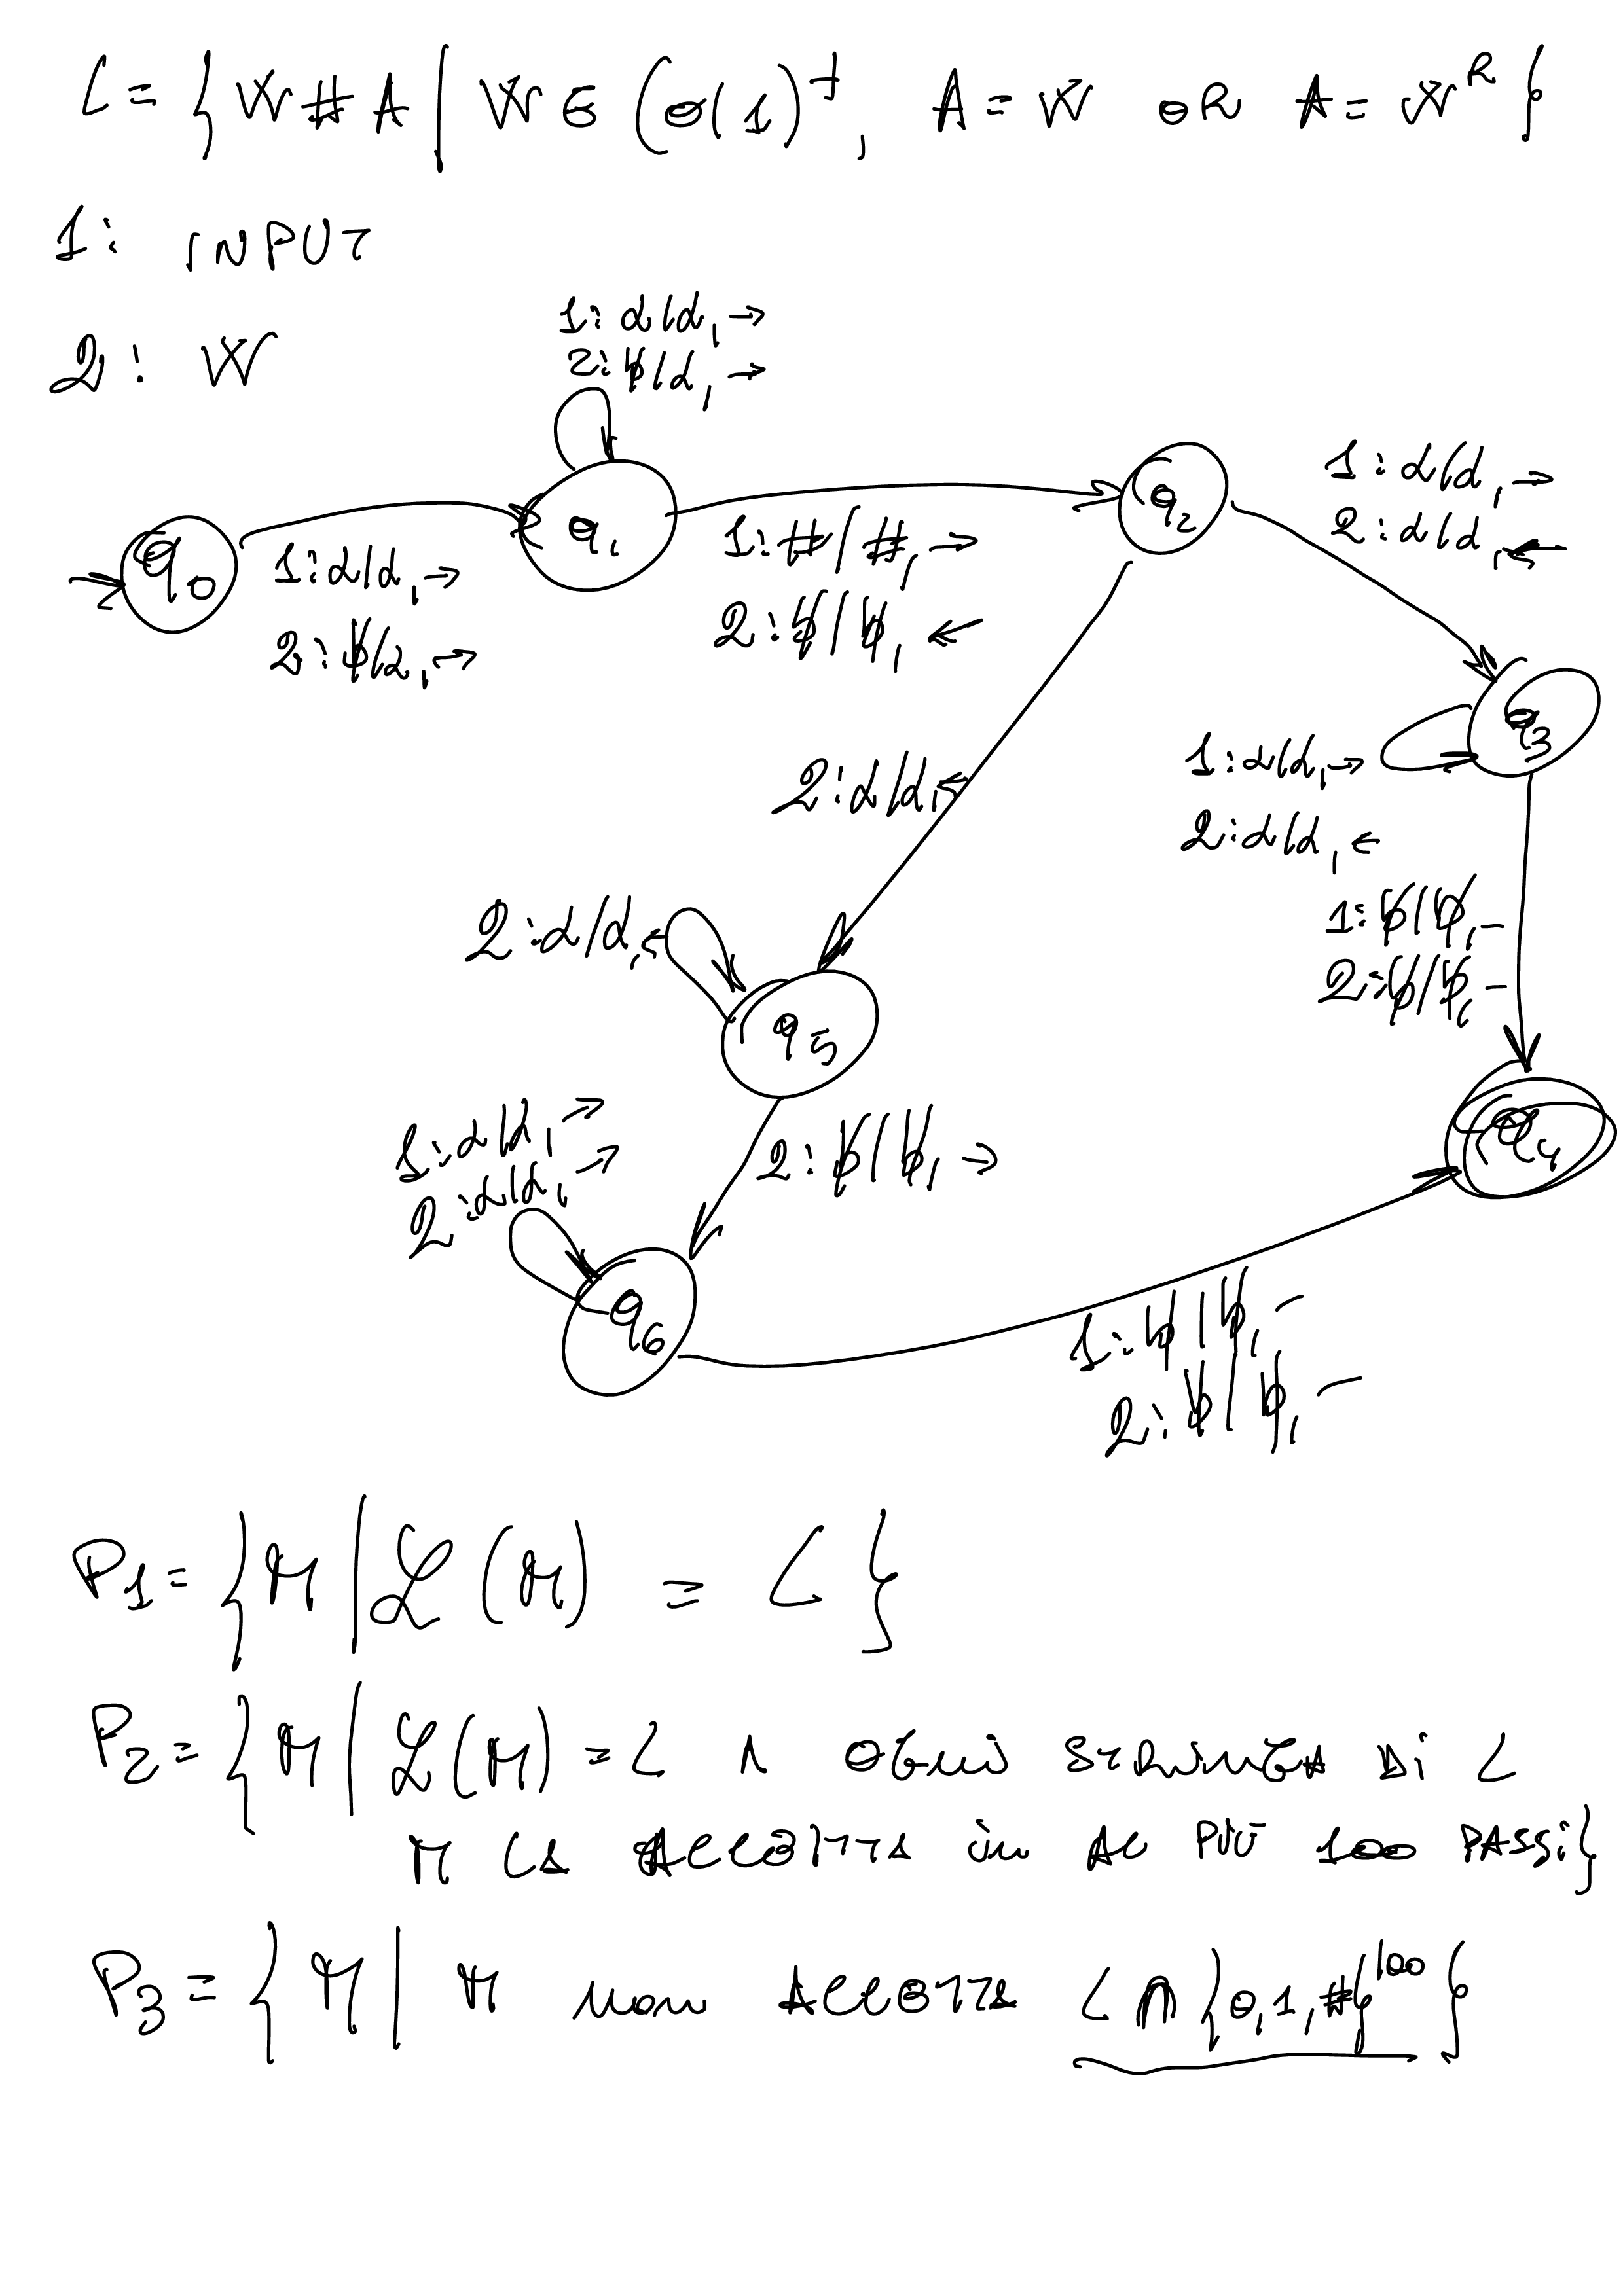 L = { W # A | W ∈ (0|1)⁺, A = W OR A = W^R }
1: INPUT
2: W
1: α/α, →
2: ƀ/α, →
q0
1: α/α, →
2: ƀ/α, →
q1
1: #/#, →
2: ƀ/ƀ, ←
q2
1: α/α, →
2: α/α, ←
q3
1: α/α, →
2: α/α, ←
2: α/α, ←
1: ƀ/ƀ, −
2: ƀ/ƀ, −
2: α/α, ←
q5
q4
1: α/α, →
2: α/α, →
2: ƀ/ƀ, →
q6
1: ƀ/ƀ, −
2: ƀ/ƀ, −
P1 = { M | ℒ(M) = L }
P2 = { M | ℒ(M) = L ∧ OGNI STRINGA DI L
M LA ACCETTA in AL PIÙ 100 PASSI }
P3 = { M | M NON ACCETTA L ∩ {0,1,#}^100 }